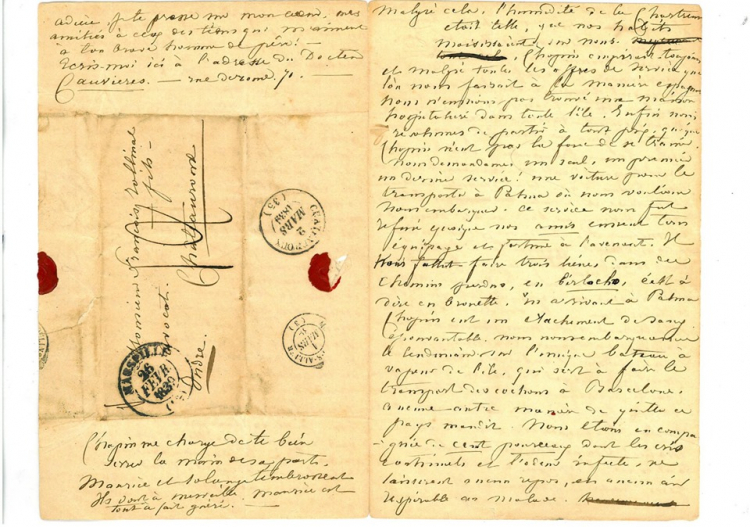 adieu, je te presse sur mon cœur, mes
amitiés à ceux des tiens qui m'aiment
à ton brave homme de père.
Ecris-moi ici à l'adresse du Docteur
Cauvières. — rue de rome, 71.
Monsieur François Rollinat
fils
avocat.
Châteauroux
Indre.
CHATEAUROUX
2
MARS
1839
(35)
1
MARS
MARSEILLE
26
FEVR
1839
Chopin me charge de te bien
serrer la main de sa part.
Maurice et Solange t'embrassent
Ils vont à merveille. Maurice est
tout à fait guéri.
Malgré cela, l'humidité de la Chartreuse
était telle, que nos habits
moisissaient sur nous.
Chopin empirait toujours
et malgré toutes les offres de service que
l'on nous faisait à la manière espagnole
nous n'eussions pas trouvé une maison
hospitalière dans toute l'île. Enfin nous
résolûmes de partir à tout prix, quoique
Chopin n'eut pas la force de se traîner.
nous demandâmes un seul, un premier
un dernier service! une voiture pour le
transporter à Palma où nous voulions
nous embarquer. ce service nous fut
refusé quoique nos amis eussent tous
équipage et fortune à l'avenant. Il
nous fallut faire trois lieues dans des
chemins perdus, en birlocho, c'est à
dire en brouette. En arrivant à Palma
Chopin eut un crachement de sang
épouvantable. nous nous embarquâmes
le lendemain sur l'unique bateau à
vapeur de l'île, qui sert à faire le
transport des cochons à Barcelone.
aucune autre manière de quitter ce
pays maudit. Nous étions en compa
-gnie de cent pourceaux dont les cris
continuels et l'odeur infecte, ne
laissèrent aucun repos, et aucun air
respirable au malade.